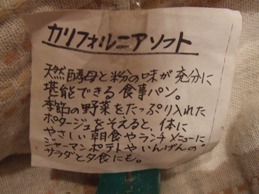 カリフォルニアソフト
天然酵母と粉の味が充分に
堪能できる食事パン。
季節の野菜をたっぷり入れた
ポタージュをそえると、体に
やさしい朝食やランチメニューに
ジャーマンポテトやいんげんの
サラダと夕食にも。